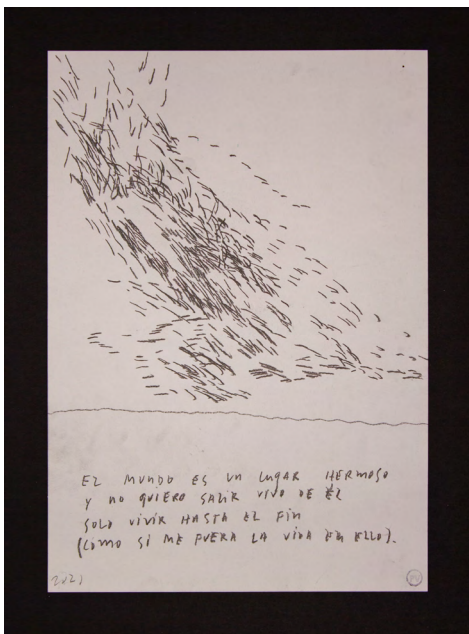 EL MUNDO ES UN LUGAR HERMOSO
Y NO QUIERO SALIR VIVO DE ÉL
SOLO VIVIR HASTA EL FIN
(COMO SI ME FUERA LA VIDA EN ELLO).
2021